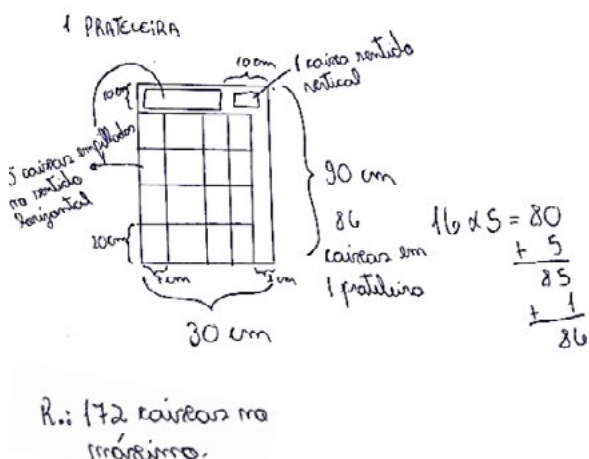 1 PRATELEIRA
10 cm
1 caixa sentido
vertical
10cm
5 caixas empilhadas
no sentido
horizontal
20cm
90 cm
86
caixas em
1 prateleira
cm
cm
30 cm
16 x 5 = 80
+ 5
85
+ 1
86
R.: 172 caixas no
máximo.